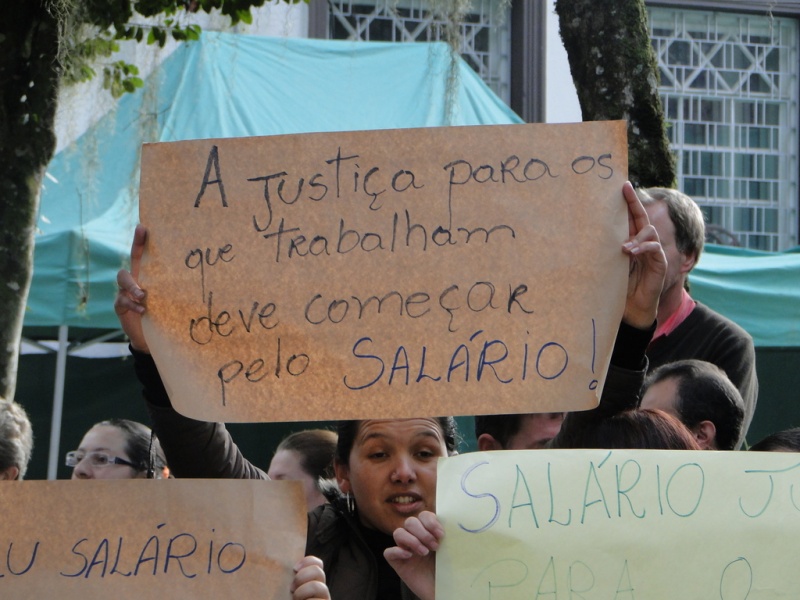 A JUSTIÇA PARA OS
que TRABALHAM
deve COMEÇAR
pelo SALÁRIO!
SALÁRIO
SALÁRIO
PARA O